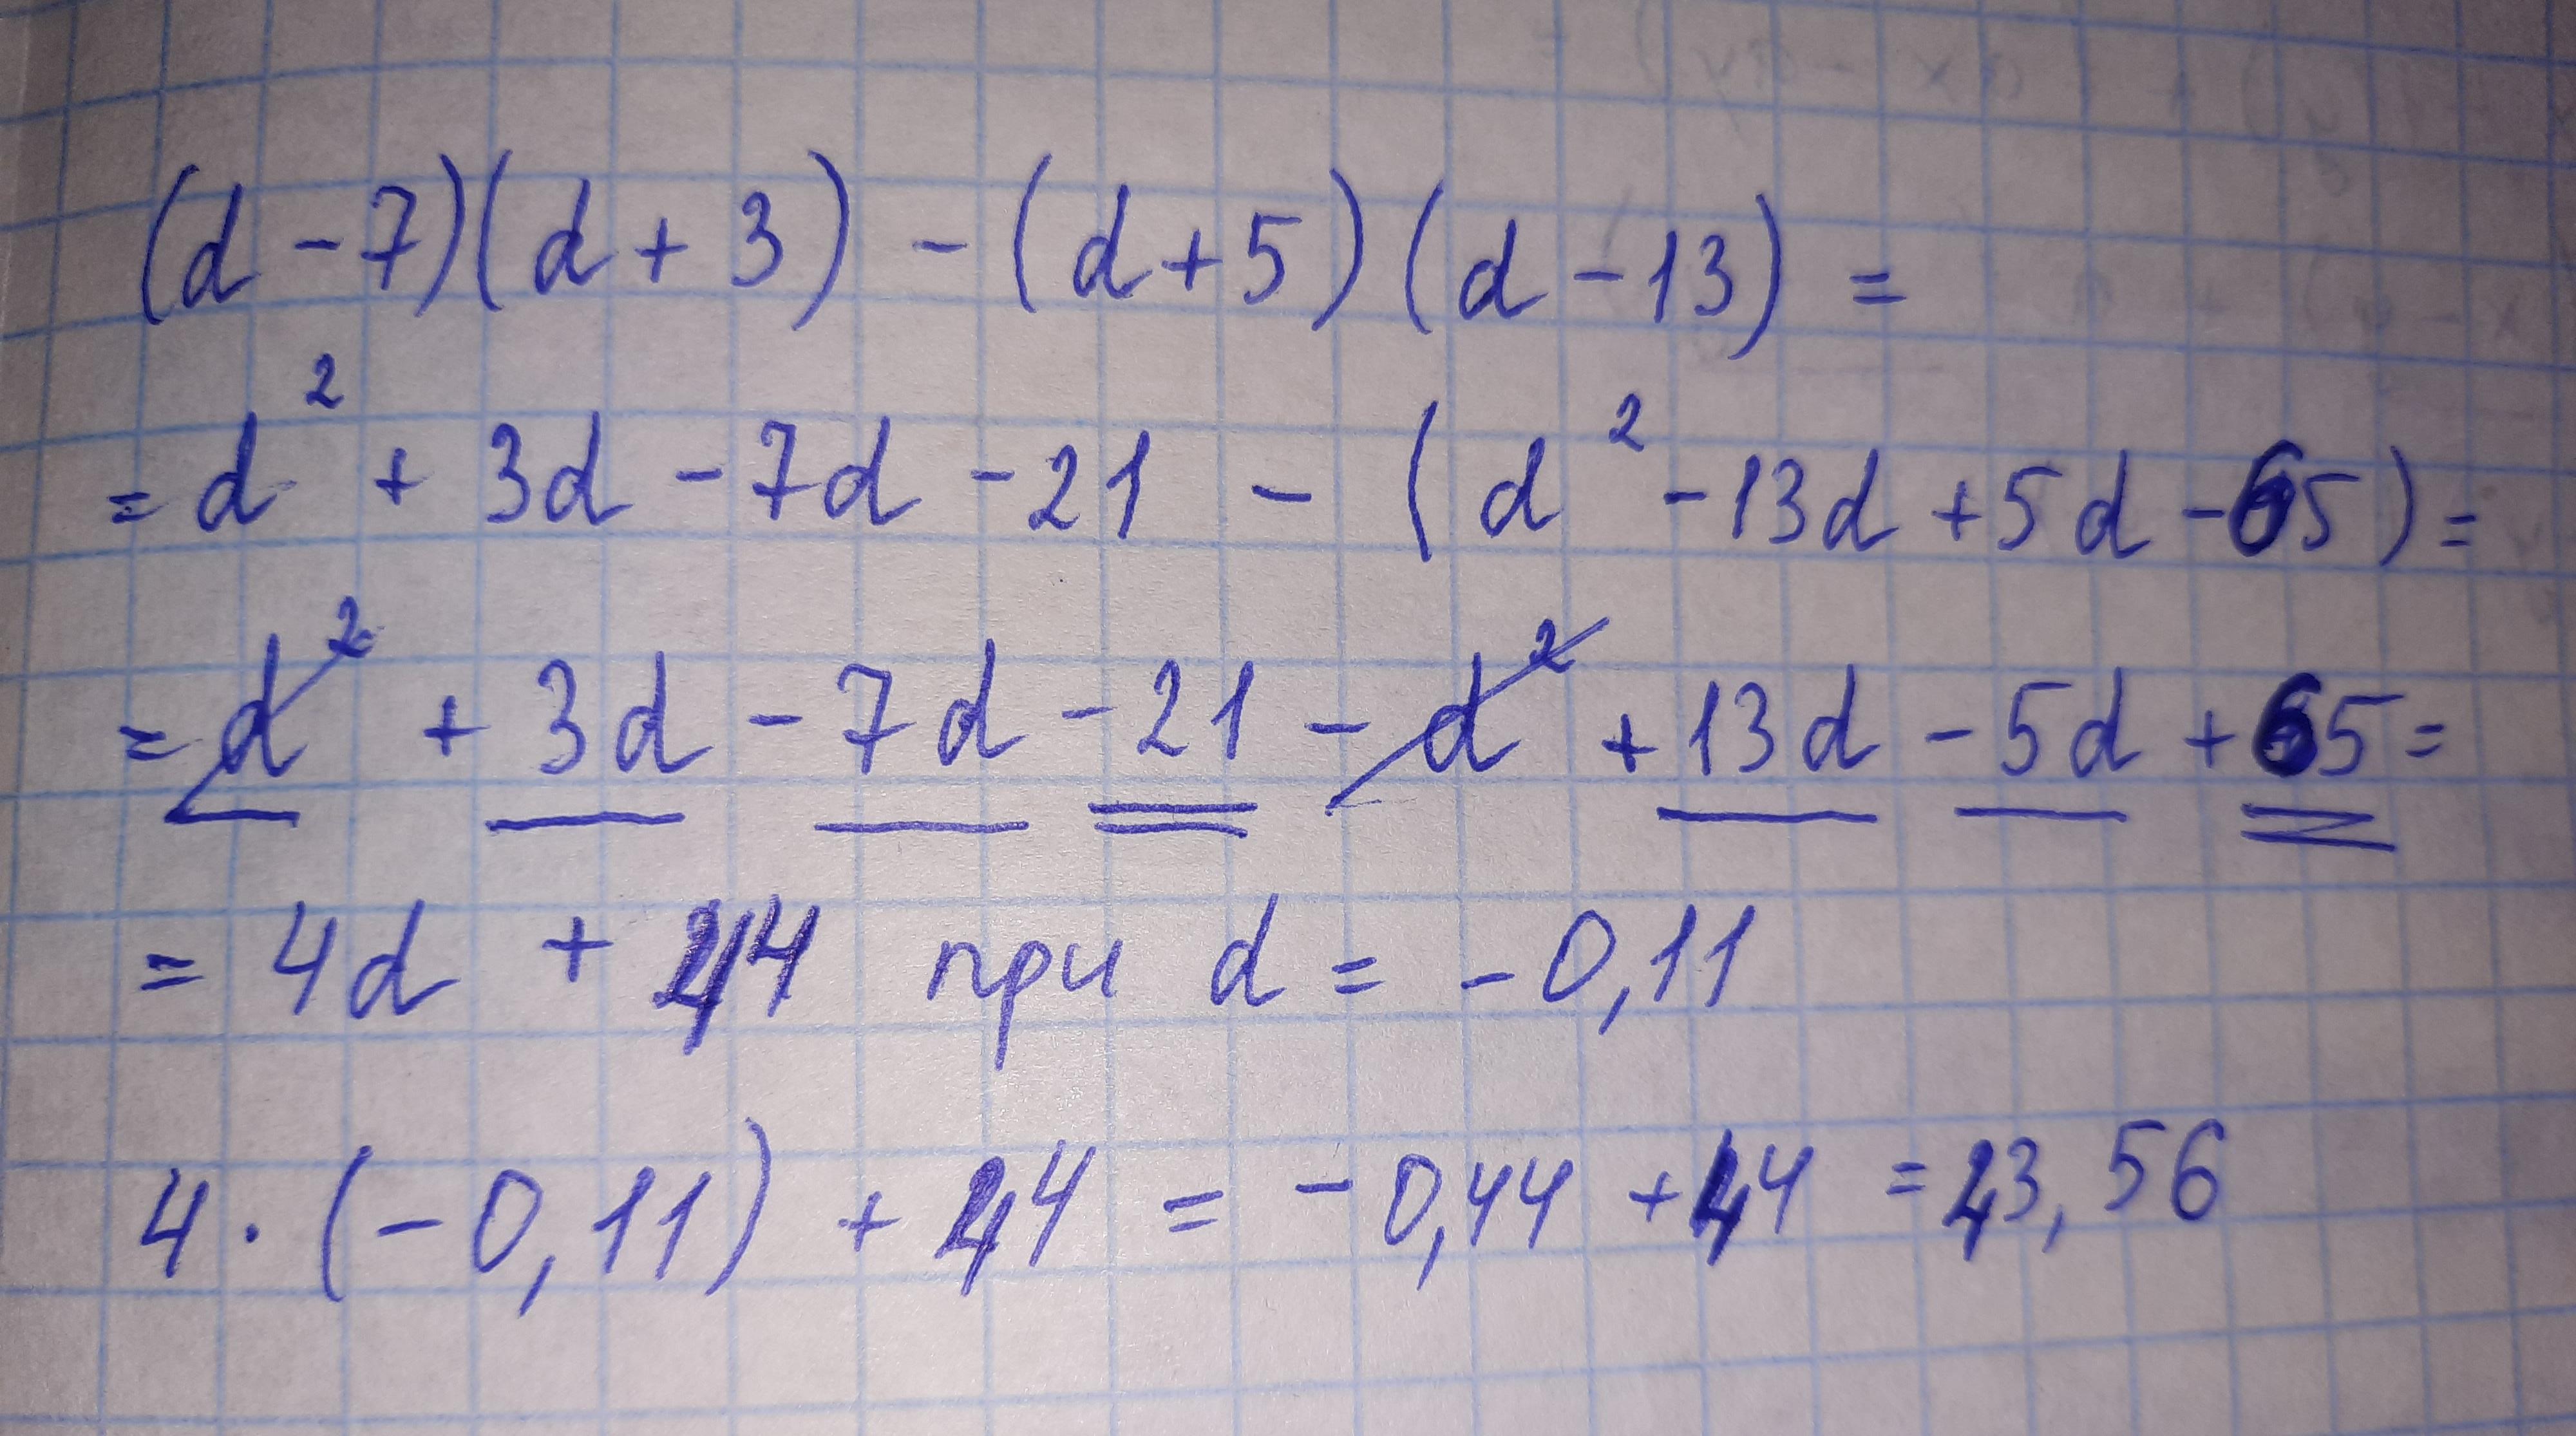 (d - 7)(d + 3) - (d + 5)(d - 13) =
= d² + 3d - 7d - 21 - (d² - 13d + 5d - 65) =
= d² + 3d - 7d - 21 - d² + 13d - 5d + 65 =
= 4d + 44 при d = - 0,11
4 · (- 0,11) + 44 = - 0,44 + 44 = 43,56